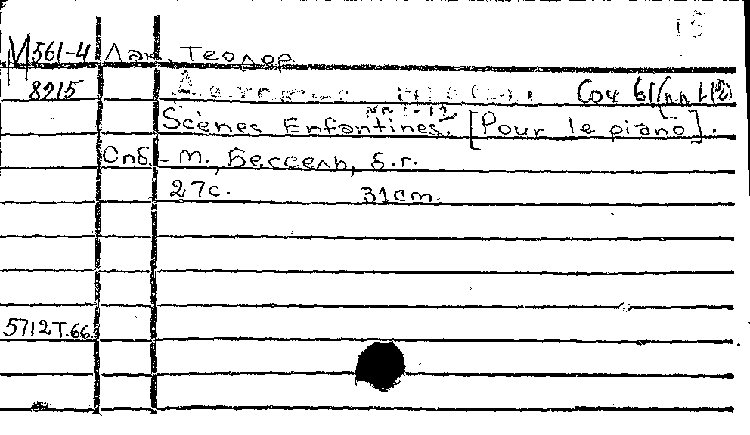 15
М561-4 Лак, Теодор
8915 Соч 61 (№№ 1-12)
№№ 1-12
Scènes Enfantines. [Pour le piano].
Спб.-М., Бессель, б.г.
27с. 31см.
5712Т.66